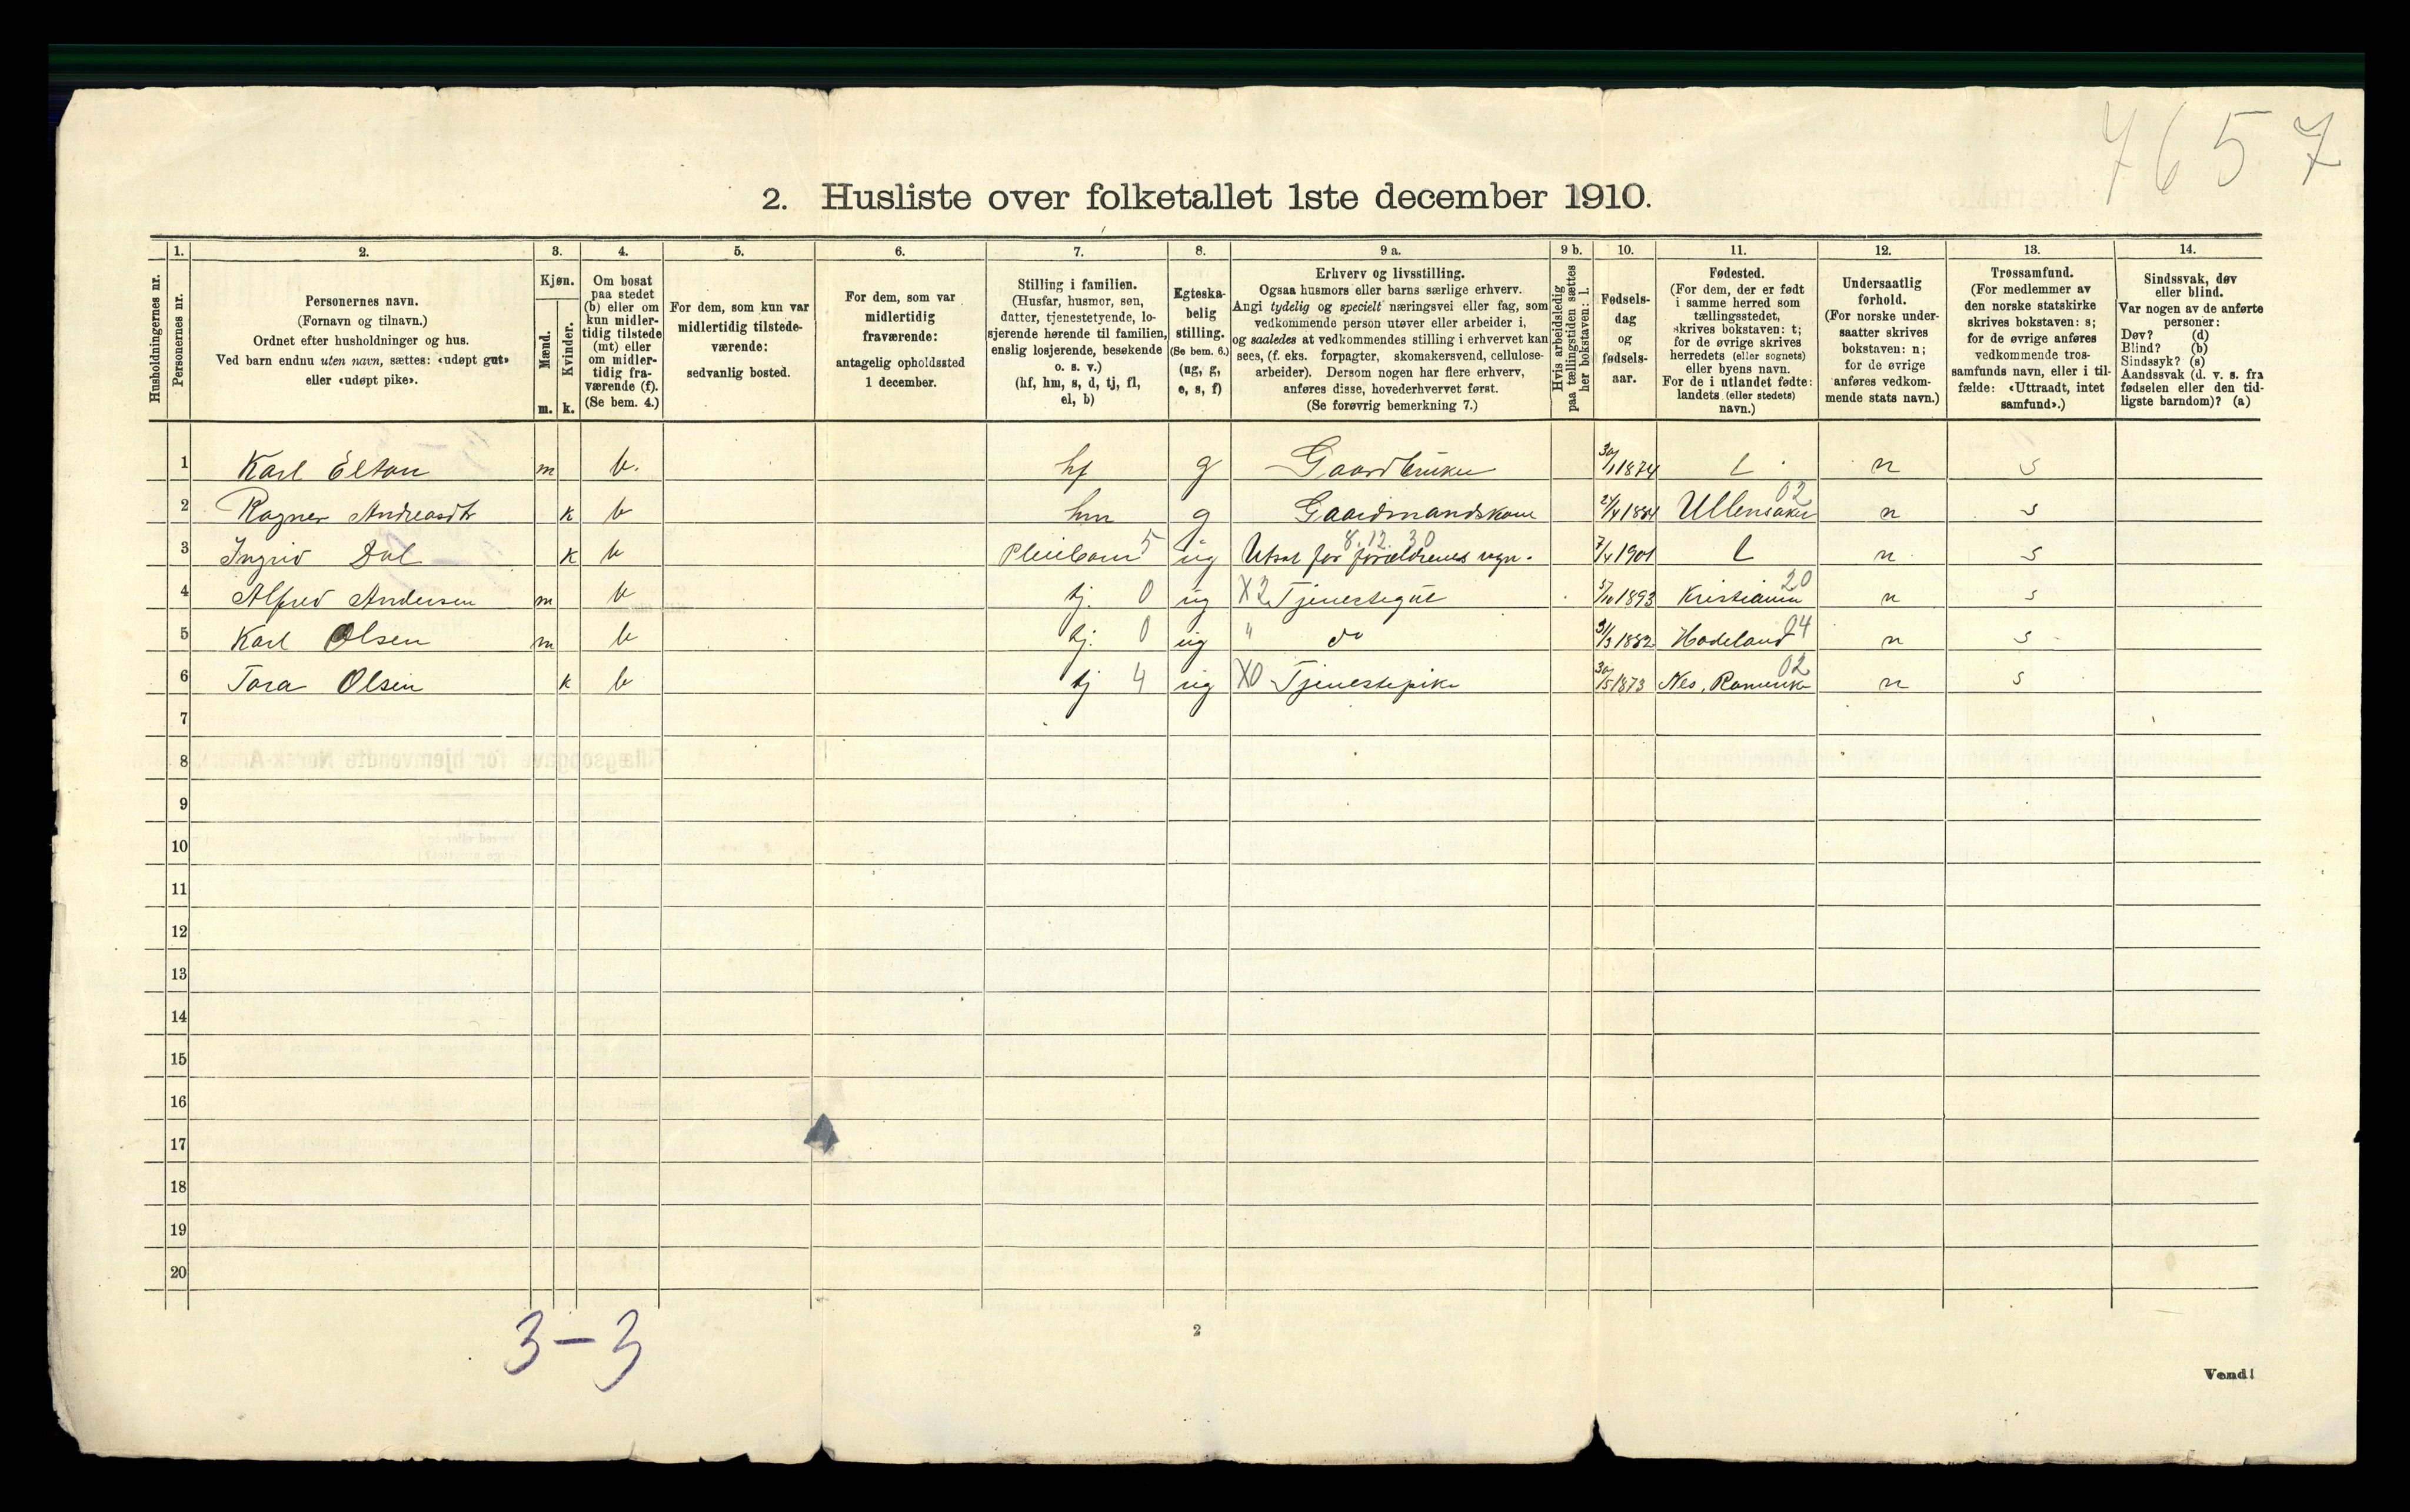 7657
2. Husliste over folketallet 1ste december 1910.
1. 2. 3. 4. 5. 6. 7. 8. 9 a. 9 b. 10. 11. 12. 13. 14.
Husholdningernes nr.
Personernes nr.
Personernes navn.
(Fornavn og tilnavn.)
Ordnet efter husholdninger og hus.
Ved barn endnu uten navn, sættes: «udøpt gut»
eller «udøpt pike».
Kjøn.
Mænd.
Kvinder.
m. k.
Om bosat
paa stedet
(b) eller om
kun midler-
tidig tilstede
(mt) eller
om midler-
tidig fra-
værende (f).
(Se bem. 4.)
For dem, som kun var
midlertidig tilstede-
værende:
sedvanlig bosted.
For dem, som var
midlertidig
fraværende:
antagelig opholdssted
1 december.
Stilling i familien.
(Husfar, husmor, søn,
datter, tjenestetyende, lo-
sjerende hørende til familien,
enslig losjerende, besøkende
o. s. v.)
(hf, hm, s, d, tj, fl,
el, b)
Egteska-
belig
stilling.
(Se bem. 6.)
(ug, g,
e, s, f)
Erhverv og livsstilling.
Ogsaa husmors eller barns særlige erhverv.
Angi tydelig og specielt næringsvei eller fag, som
vedkommende person utøver eller arbeider i,
og saaledes at vedkommendes stilling i erhvervet kan
sees, (f. eks. forpagter, skomakersvend, cellulose-
arbeider). Dersom nogen har flere erhverv,
anføres disse, hovederhvervet først.
(Se forøvrig bemerkning 7.)
Hvis arbeidsledig
paa tællingstiden sættes
her bokstaven: l.
Fødsels-
dag
og
fødsels-
aar.
Fødested.
(For dem, der er født
i samme herred som
tællingsstedet,
skrives bokstaven: t;
for de øvrige skrives
herredets (eller sognets)
eller byens navn.
For de i utlandet fødte:
landets (eller stedets)
navn.)
Undersaatlig
forhold.
(For norske under-
saatter skrives
bokstaven: n;
for de øvrige
anføres vedkom-
mende stats navn.)
Trossamfund.
(For medlemmer av
den norske statskirke
skrives bokstaven: s;
for de øvrige anføres
vedkommende tros-
samfunds navn, eller i til-
fælde: «Uttraadt, intet
samfund».)
Sindssvak, døv
eller blind.
Var nogen av de anførte
personer:
Døv? (d)
Blind? (b)
Sindssyk? (s)
Aandssvak (d. v. s. fra
fødselen eller den tid-
ligste barndom)? (a)
1 Karl Elton m b. hf g Gaardbruker 30/1 1874 t n s
2 Ragner Andreasdtr k b hm g Gaardmandskone 1884 Ullensaker 02 n s
3 Ingrid Dal k b Pleiebarn 5 ug 8.12.30 Utsat for forældrenes regn. 7/4 1901 t n s
4 Alfred Andersen m b tj. 0 ug X2 Tjenestegut 5/10 1893 Kristiania 20 n s
5 Karl Olsen m b tj. 0 ug " do 31/3 1882 Hadeland 04 n s
6 Tora Olsen k b tj 4 ug X0 Tjenestepike 30/5 1873 Nes, Romerike 02 n s
7
8
9
10
11
12
13
14
15
16
17
18
19
20
3-3
2
Vend!